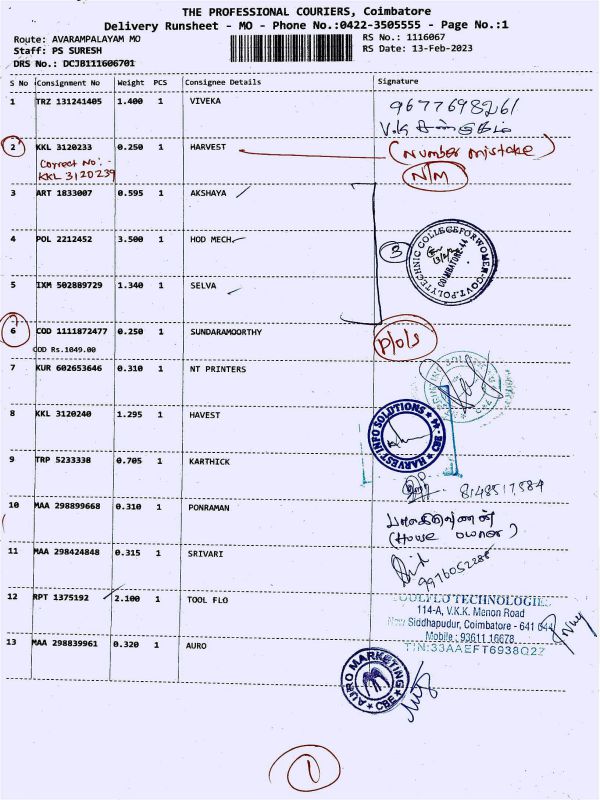 THE PROFESSIONAL COURIERS, Coimbatore
Delivery Runsheet - MO - Phone No.:0422-3505555 - Page No.:1
Route: AVARAMPALAYAM MO
RS No.: 1116067
Staff: PS SURESH
RS Date: 13-Feb-2023
DRS No.: DCJB111606701
S No Consignment No Weight PCS Consignee Details Signature
1 TRZ 131241405 1.400 1 VIVEKA
9677698261
V.K
2 KKL 3120233 0.250 1 HARVEST (Number mistake)
Correct No:-
KKL 3120239
N/M
3 ART 1833007 0.595 1 AKSHAYA
4 POL 2212452 3.500 1 HOD MECH
3
POLYTECHNIC COLLEGE FOR WOMEN GOVT. COIMBATORE-44
5 IXM 502889729 1.340 1 SELVA
6 COD 1111872477 0.250 1 SUNDARAMOORTHY
COD Rs.1049.00
P/o/s
7 KUR 602653646 0.310 1 NT PRINTERS
8 KKL 3120240 1.295 1 HAVEST
HARVEST INFO SOLUTIONS CBE-44
9 TRP 5233338 0.705 1 KARTHICK
8148517584
10 MAA 298899668 0.310 1 PONRAMAN
(House owner)
11 MAA 298424848 0.315 1 SRIVARI
9976052288
12 RPT 1375192 2.100 1 TOOL FLO
TOOLFLO TECHNOLOGIE
114-A, V.K.K. Menon Road
New Siddhapudur, Coimbatore - 641 044
Mobile : 93611 16678
TIN:33AAEFT6938Q2Z
13 MAA 298839961 0.320 1 AURO
AURO MARKETING CBE
1